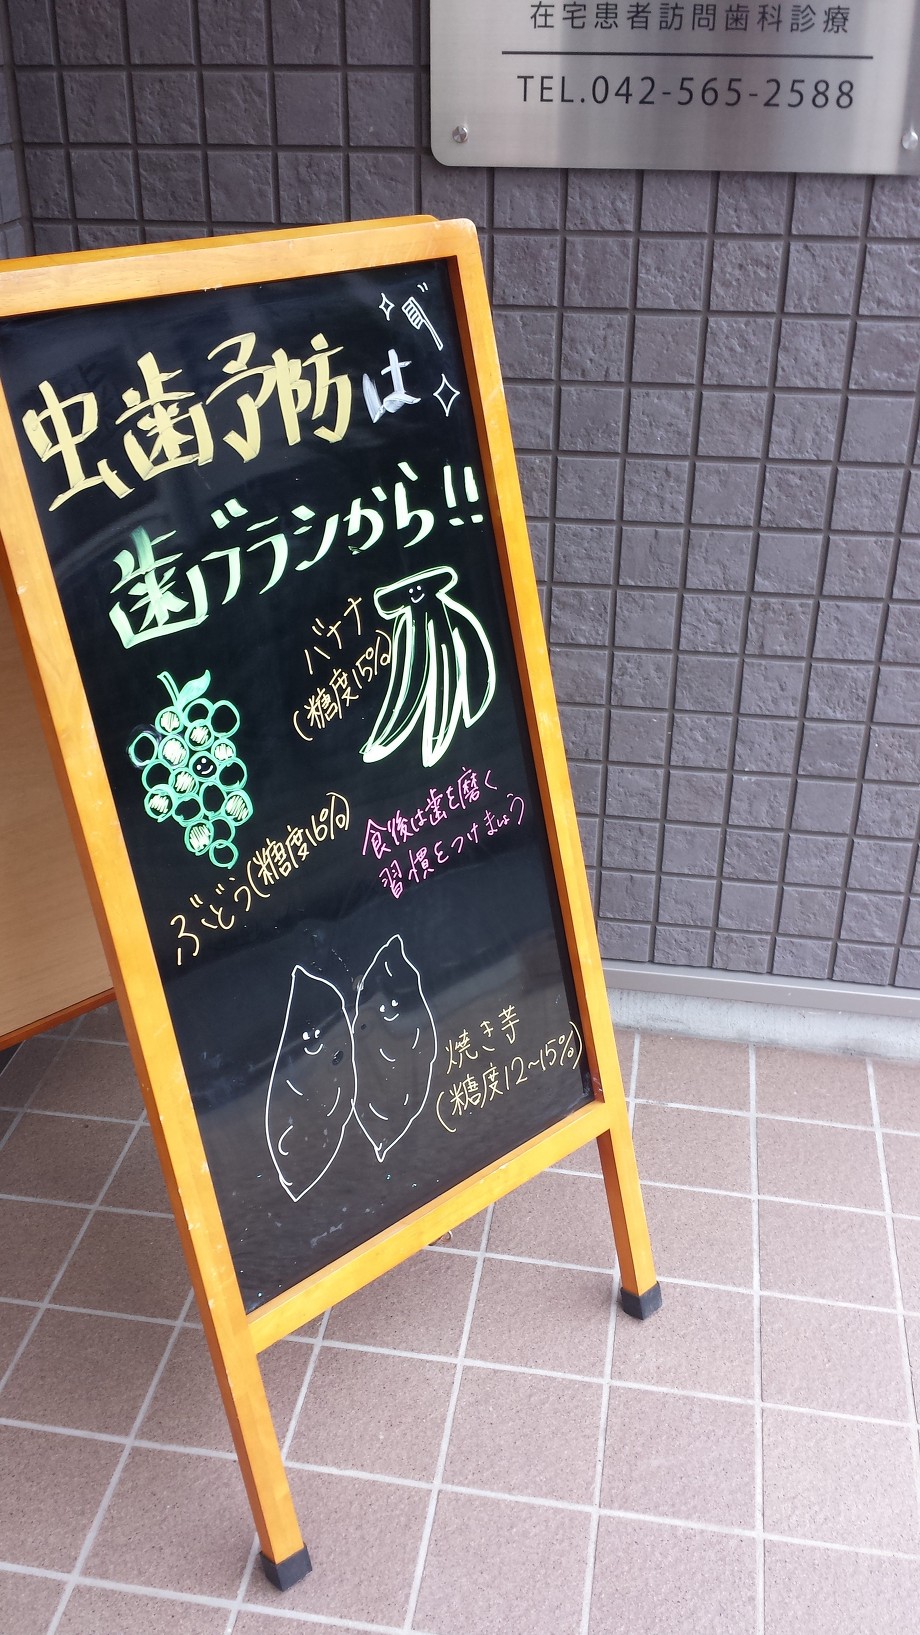 在宅患者訪問歯科診療
TEL.042-565-2588
虫歯予防は
歯ブラシから!!
バナナ
(糖度15%)
ぶどう(糖度16%)
食後は歯を磨く
習慣をつけましょう
焼き芋
(糖度12~15%)